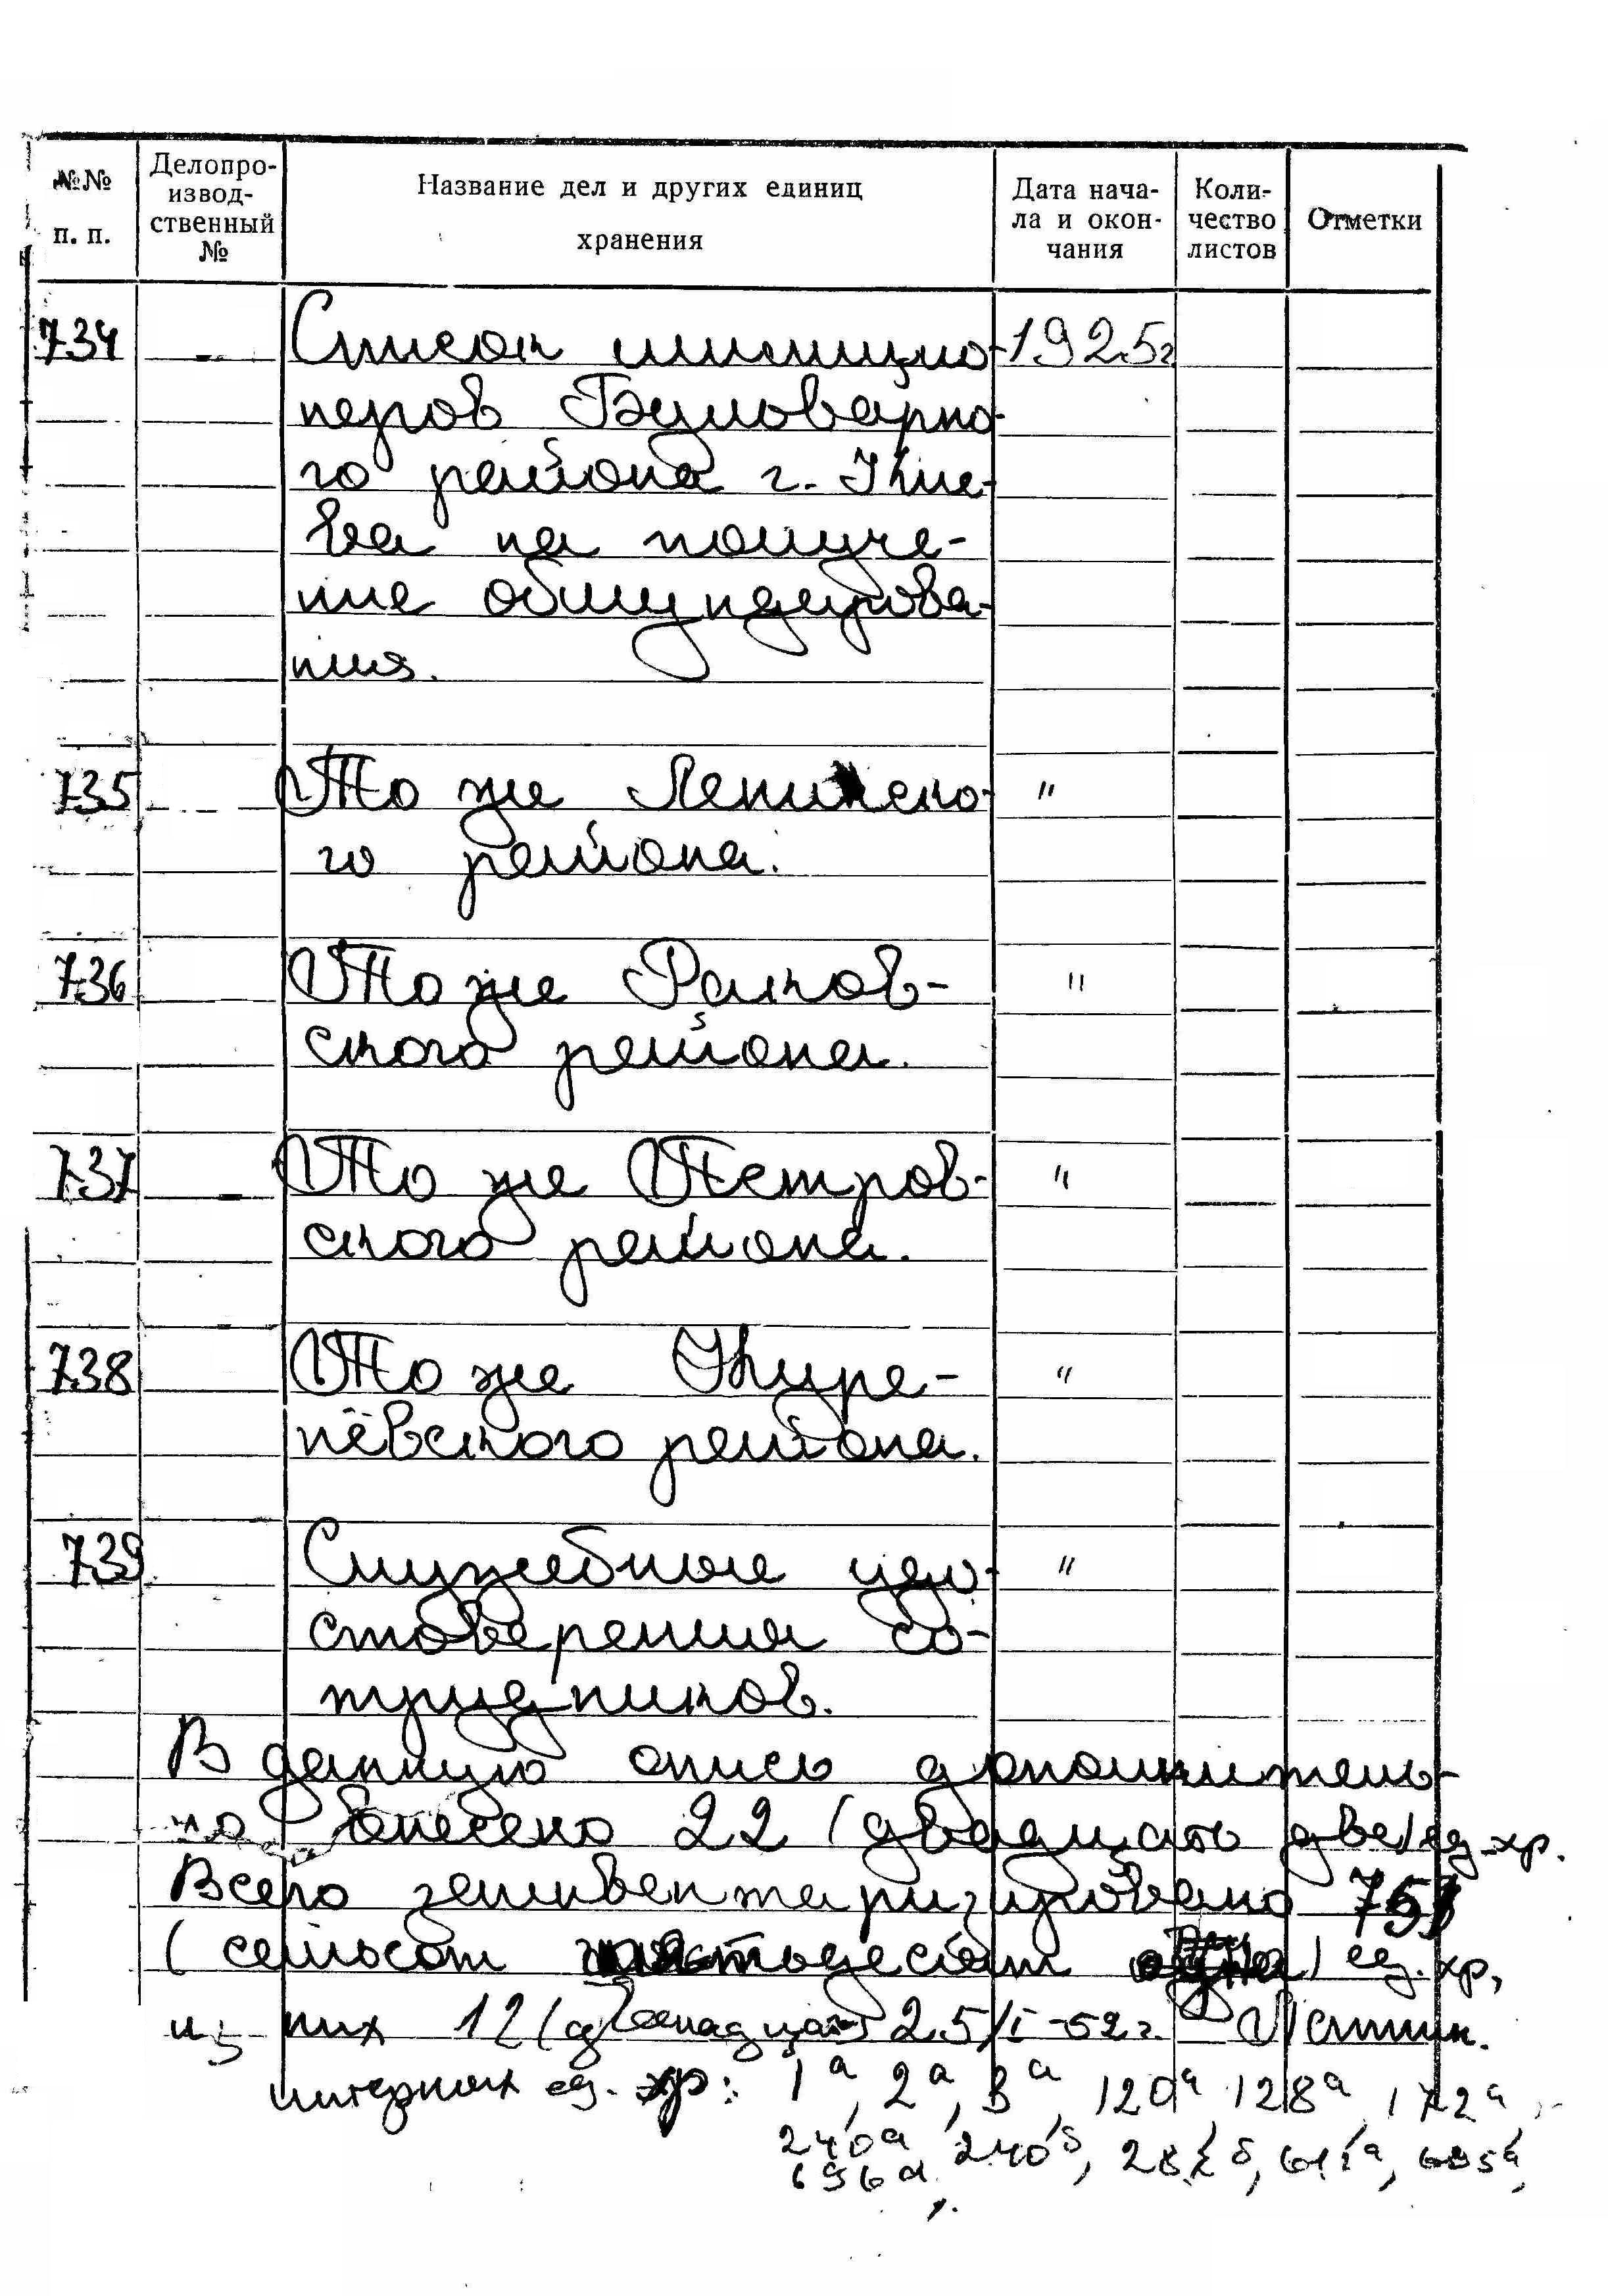 №№ п. п.
Делопро-
извод-
ственный
№
Название дел и других единиц
хранения
Дата нача-
ла и окон-
чания
Коли-
чество
листов
Отметки
734 - Список милицио- 1925г
неров Бульварно-
го района г. Кие-
ва на получе-
ние обмундирова-
ния.
735 - То же Ленинско- "
го района.
736 То же Раков- "
ского района.
737 - То же Петров- "
ского района.
738 То же Куре- "
нёвского района.
739 Служебные удо- "
стоверения со-
трудников.
В данную опись дополнитель-
но внесено 22 (двадцать две) ед. хр.
Всего заинвентаризировано 751
(семьсот пятьдесят одна) ед. хр,
из них 12 (двенадцать) 25/I-52 г.
литерных ед. хр: 1а, 2а, 3а, 120а, 128а, 172а,
240а, 240б,
696а